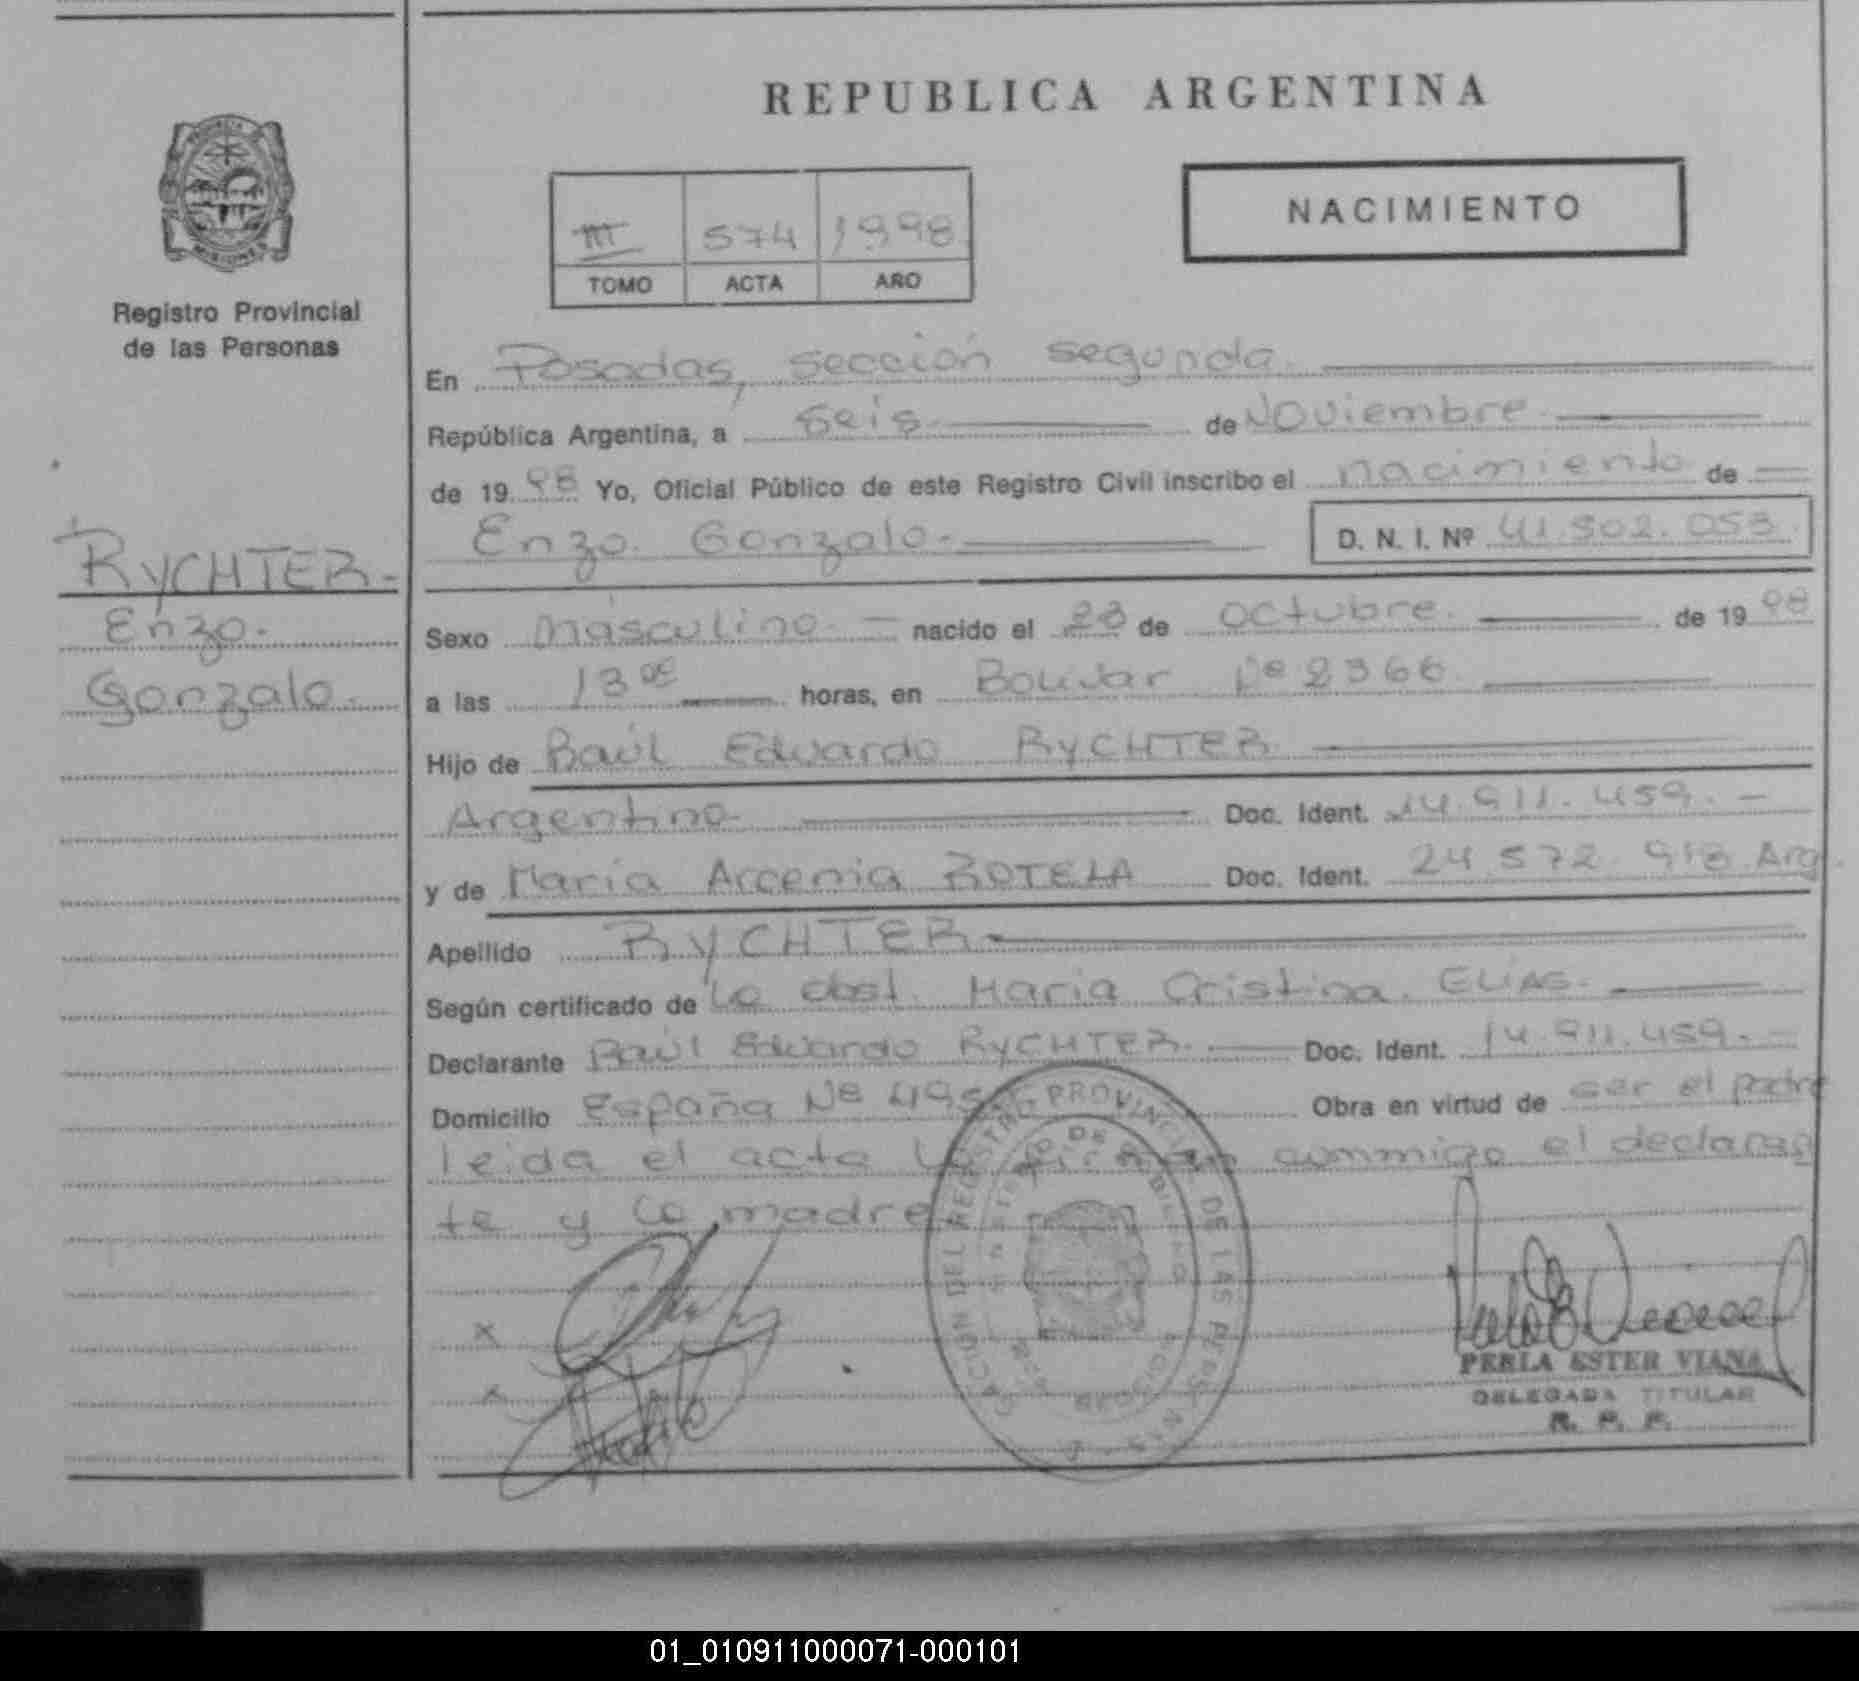 REPUBLICA ARGENTINA
PROVINCIA DE
MISIONES
Registro Provincial
de las Personas
NACIMIENTO
III 574 1998
TOMO ACTA AÑO
En Posadas, sección segunda.
República Argentina, a seis de Noviembre
de 19 98 Yo, Oficial Público de este Registro Civil inscribo el nacimiento de
Enzo Gonzalo.
D. N. I. Nº 41.502.053.
RYCHTER.
Enzo.
Gonzalo.
Sexo masculino. nacido el 23 de octubre. de 19 98
a las 13 horas, en Bolivar Nº 2366.
Hijo de Raúl Eduardo RYCHTER
Argentino Doc. Ident. 14.911.459.
y de Maria Arcenia ROTELA Doc. Ident. 24.572.918 Arg.
Apellido RYCHTER
Según certificado de la obst. Maria Cristina ELIAS.
Declarante Raúl Eduardo RYCHTER. Doc. Ident. 14.911.459.
Domicilio España Nº Obra en virtud de ser el padre
leida el acta la firman conmigo el declaran
te y la madre
DEL REGISTRO PROVINCIAL DE LAS PERSONAS
x
x
PERLA ESTER VIANA
DELEGADA TITULAR
R. P. P.
01_010911000071-000101